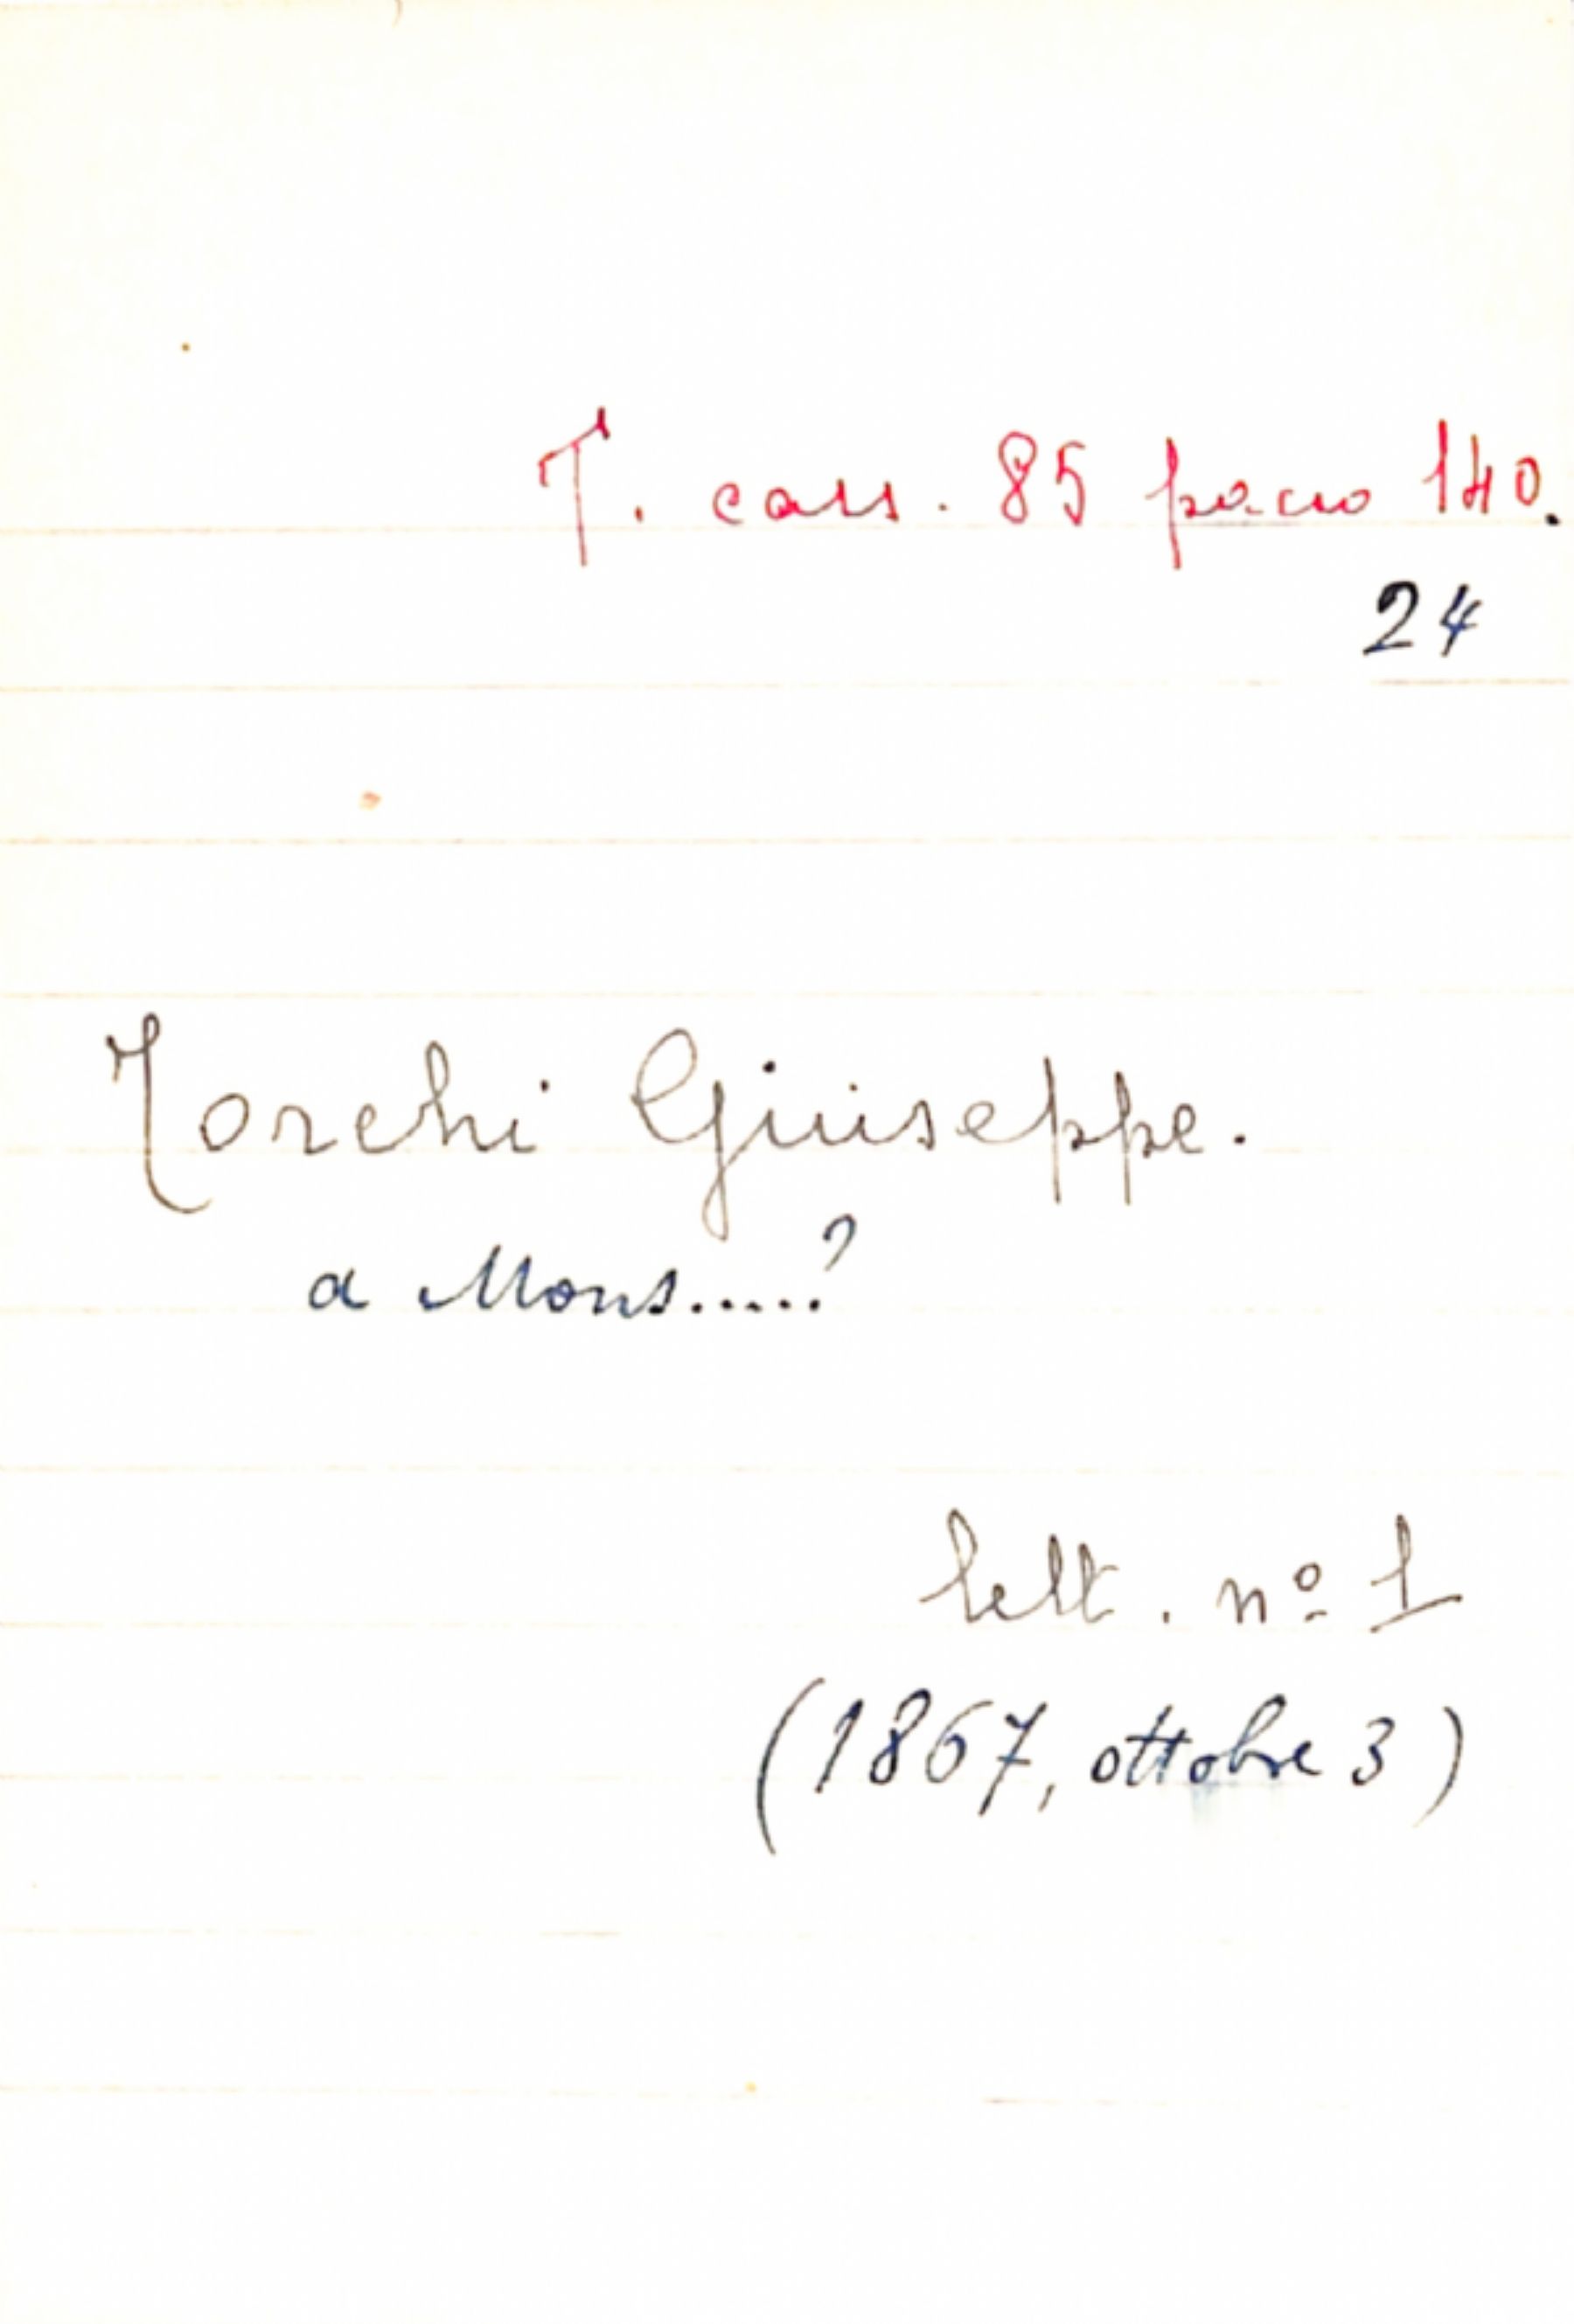 T. cass. 85 pacco 140.
24
Torchi Giuseppe.
a Mons.....?
lett. nº 1
(1867, ottobre 3)